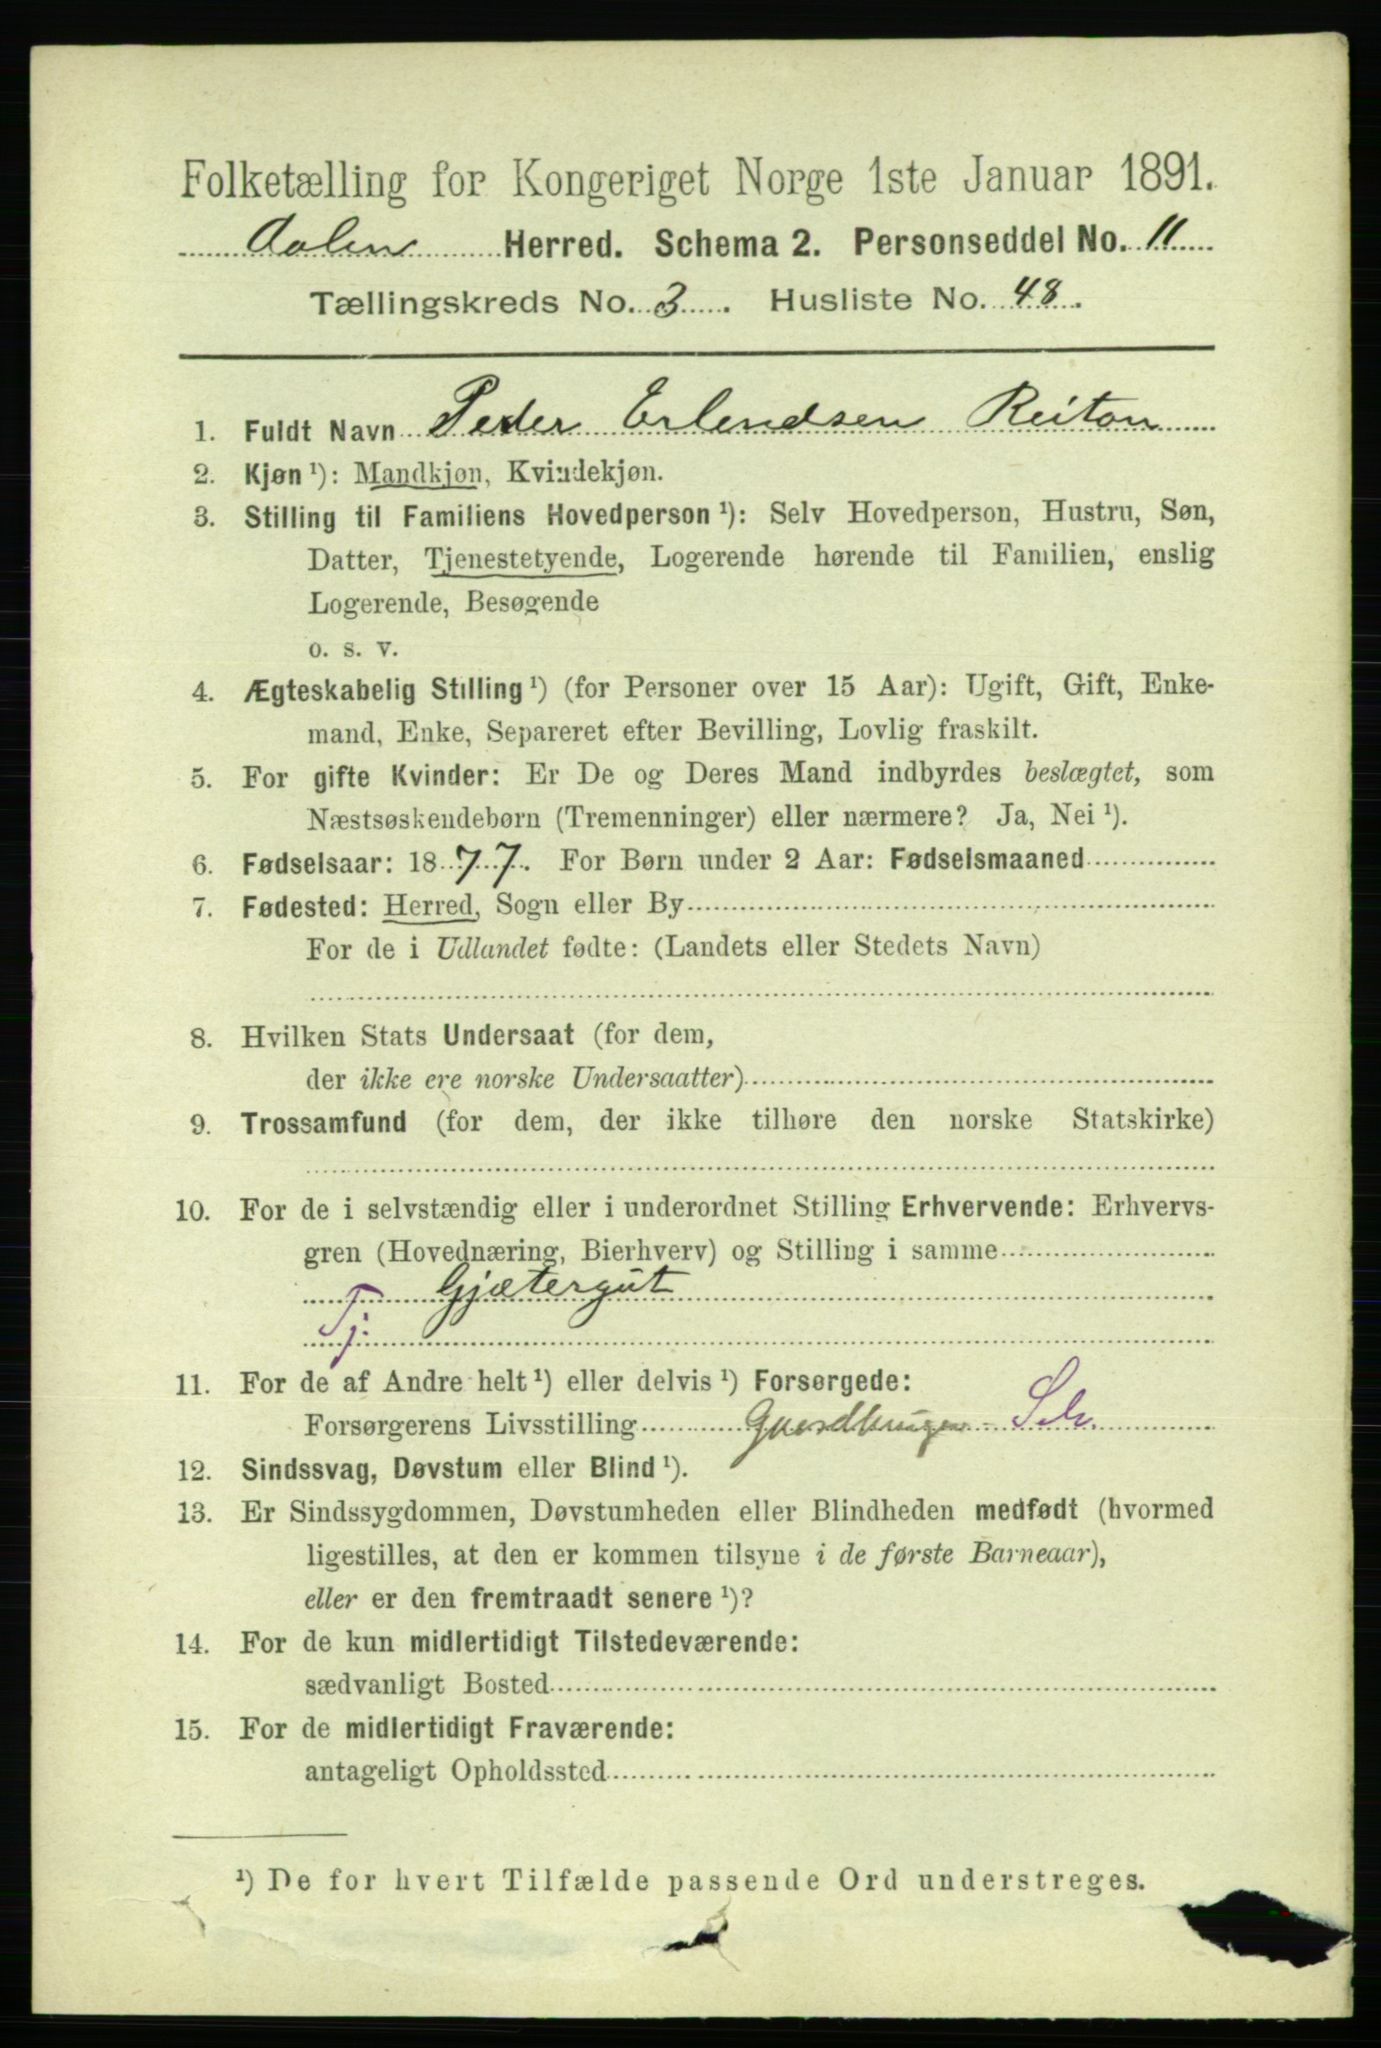 Folketælling for Kongeriget Norge 1ste Januar 1891.
Aalen Herred. Schema 2. Personseddel No. 11
Tællingskreds No. 3. Husliste No. 48.
1. Fuldt Navn Peder Erlendsen Reitan
2. Kjøn ¹): Mandkjøn, Kvindekjøn.
3. Stilling til Familiens Hovedperson ¹): Selv Hovedperson, Hustru, Søn,
Datter, Tjenestetyende, Logerende hørende til Familien, enslig
Logerende, Besøgende
o. s. v.
4. Ægteskabelig Stilling ¹) (for Personer over 15 Aar): Ugift, Gift, Enke-
mand, Enke, Separeret efter Bevilling, Lovlig fraskilt.
5. For gifte Kvinder: Er De og Deres Mand indbyrdes beslægtet, som
Næstsøskendebørn (Tremenninger) eller nærmere? Ja, Nei ¹).
6. Fødselsaar: 1877. For Børn under 2 Aar: Fødselsmaaned
7. Fødested: Herred, Sogn eller By
For de i Udlandet fødte: (Landets eller Stedets Navn)
8. Hvilken Stats Undersaat (for dem,
der ikke ere norske Undersaatter)
9. Trossamfund (for dem, der ikke tilhøre den norske Statskirke)
10. For de i selvstændig eller i underordnet Stilling Erhvervende: Erhvervs-
gren (Hovednæring, Bierhverv) og Stilling i samme
Gjætergut
Tj:
11. For de af Andre helt ¹) eller delvis ¹) Forsørgede:
Forsørgerens Livsstilling Gaardbruger
12. Sindssvag, Døvstum eller Blind ¹).
13. Er Sindssygdommen, Døvstumheden eller Blindheden medfødt (hvormed
ligestilles, at den er kommen tilsyne i de første Barneaar),
eller er den fremtraadt senere ¹)?
14. For de kun midlertidigt Tilstedeværende:
sædvanligt Bosted
15. For de midlertidigt Fraværende:
antageligt Opholdssted
¹) De for hvert Tilfælde passende Ord understreges.